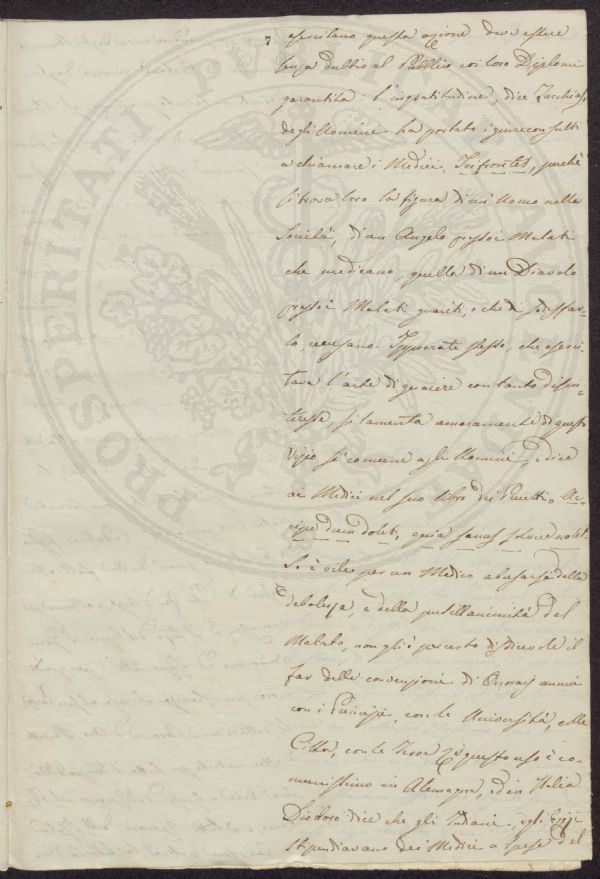 7
esercitano questa azione deve essere
senza dubbio al Pubblico coi loro Diplomi
garantita: l'ingratitudine, dice Zacchias,
degli Uomini ha portato i giureconsulti
a chiamare i Medici, Trifrontes, perchè
si trova loro la figura di un Uomo nella
Società, di un Angelo presso i Malati
che medicano, quella di un Diavolo
presso i Malati guariti, e che di sodisfar-
lo, ricusano. Ippocrate stesso, che eserci-
tava l'arte di guarire con tanto disin-
teresse, si lamenta amaramente di questo
Vizio sì comune agli Uomini, e dice
ai Medici nel suo libro dei Precetti " Ac-
cipe dum dolet, quia sanus solvere nolet.
Se è vile per un Medico abusarsi della
debolezza, e della pusillanimità del
Malato, non gli è per certo disdicevole il
far delle convenzioni di Onorarj annui
con i Principi, con le Università, colle
Città, con le Terre &c questo uso è co-
munissimo in Alemagna, ed in Italia.
Diodoro dice che gli Indiani, e gli Egizj
stipendiavano dei Medici a spese del
PROSPERITATI PUBLICAE